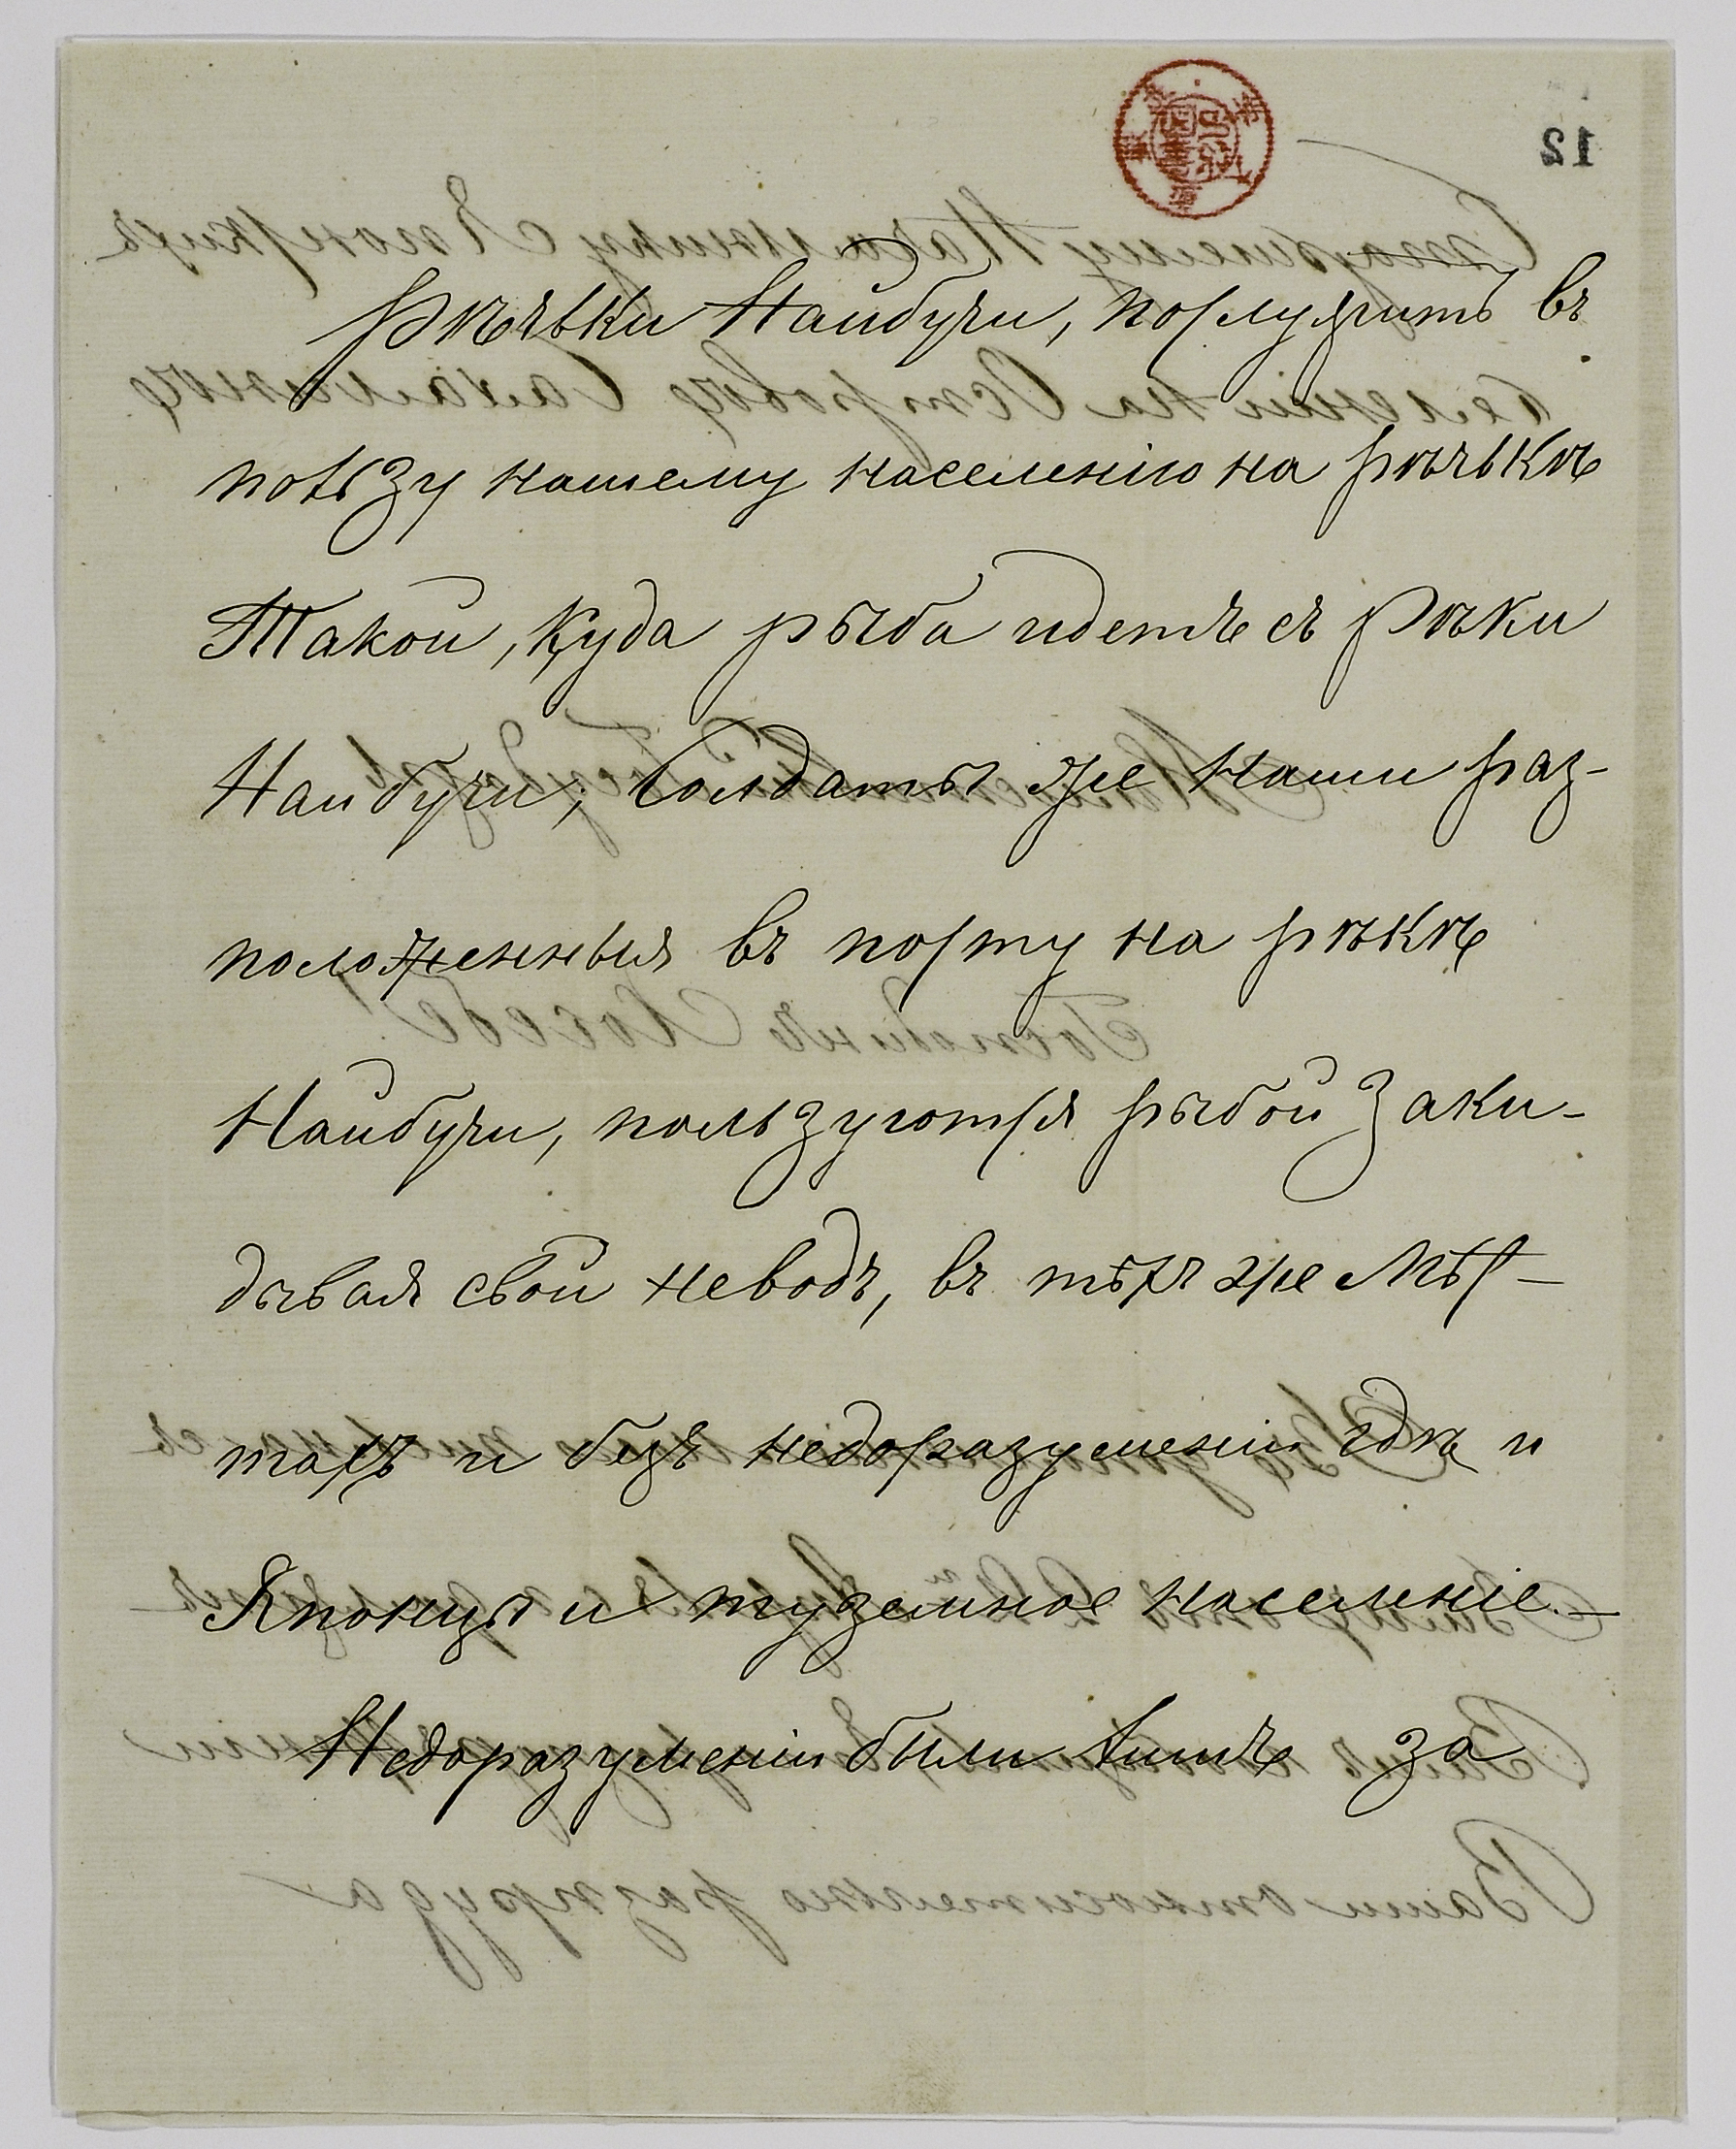 Рѣчьки Найбучи, послужитъ въ
пользу нашему населенію на рѣчькѣ
Такой, куда рыба идетъ съ Рѣки
Найбучи; Солдаты же наши раз-
положенныя въ посту на рѣкѣ
Найбучи, пользуются рыбой заки-
дывая свой неводъ, въ тѣхъ же мѣс-
тахъ и безъ недоразуменіи гдѣ и
Японцы и туземное населеніе.—
Недоразуменіи были лишь за